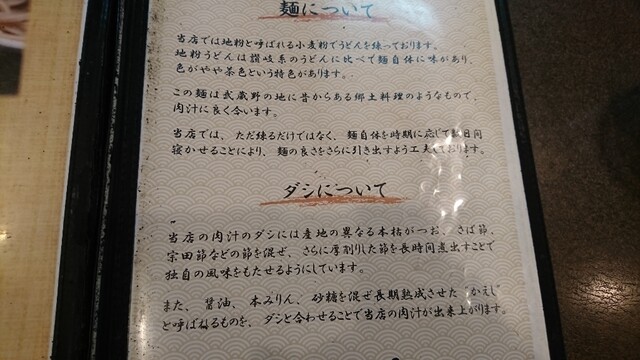 麺について
当店では地粉と呼ばれる小麦粉でうどんを練っております。
地粉うどんは讃岐系のうどんに比べて麺自体に味があり、
色がやや茶色という特色があります。
この麺は武蔵野の地に昔からある郷土料理のようなもので、
肉汁に良く合います。
当店では、ただ練るだけではなく、麺自体を時期に応じて数日間
寝かせることにより、麺の良さをさらに引き出すよう工夫しております。
ダシについて
当店の肉汁のダシには産地の異なる本枯がつお、さば節、
宗田節などの節を混ぜ、さらに厚削りした節を長時間煮出すことで
独自の風味をもたせるようにしています。
また、醤油、本みりん、砂糖を混ぜ長期熟成させた"かえし"
と呼ばれるものを、ダシと合わせることで当店の肉汁が出来上がります。